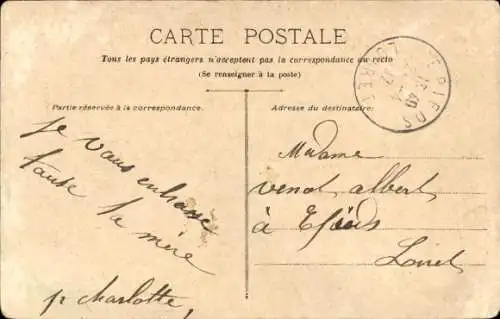 CARTE POSTALE
Tous les pays étrangers n'acceptent pas la correspondance au recto
(Se renseigner à la poste)
Partie réservée à la correspondance.
Adresse du destinataire:
je vous embrasse
toute la mère
p charlotte,
Madame
venot albert
à
Loiret
LOIRET